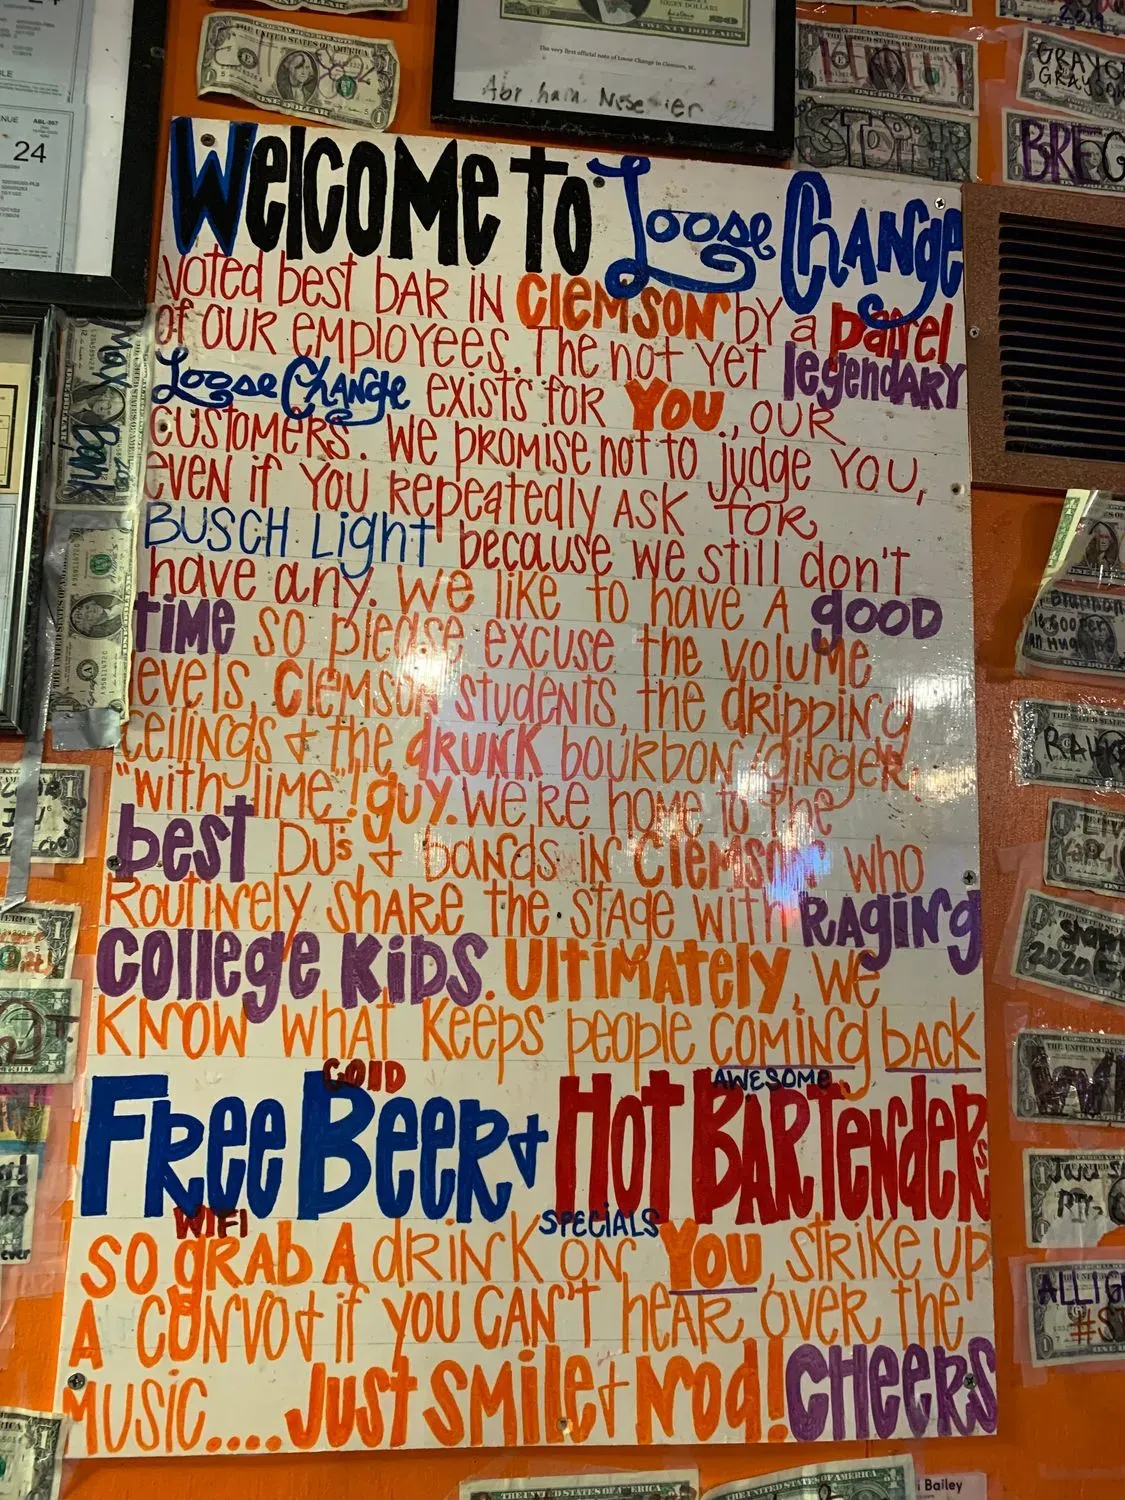 THE UNITED STATES OF AMERICA
ONE DOLLAR
TWENTY DOLLARS
The very first official note of Loose Change in Clemson, SC.
24
BREG
WELCOME TO Loose CHANGE
voted best BAR IN CLEMSON by a panel
of OUR EMPLOYEES. The not yet legendARY
Loose Change exists for YOU, OUR
CUSTOMERS. We PROMISE not to judge YOU,
even if YOU REPEATEDLY ASK FOR
BUSCH Light because we still don't
have any. We like to have A good
TIME so please excuse the volume
levels, Clemson students, the dripping
ceilings & the drunk bourbon/ginger,
"with lime"! guy. We're home to the
best DJs & bands in Clemson who
Routinely share the stage with RAGING
College KIDS. Ultimately, we
KNOW what keeps people coming back
COLD AWESOME
FREE BEER & HOT BARTENDERs
WIFI SPECIALS
SO GRAB A drink on YOU, strike up
A convo & if you CAN'T hear over the
MUSIC.... Just Smile & Nod! CHEERS
MAX BANK
2020
ALLIG
i Bailey